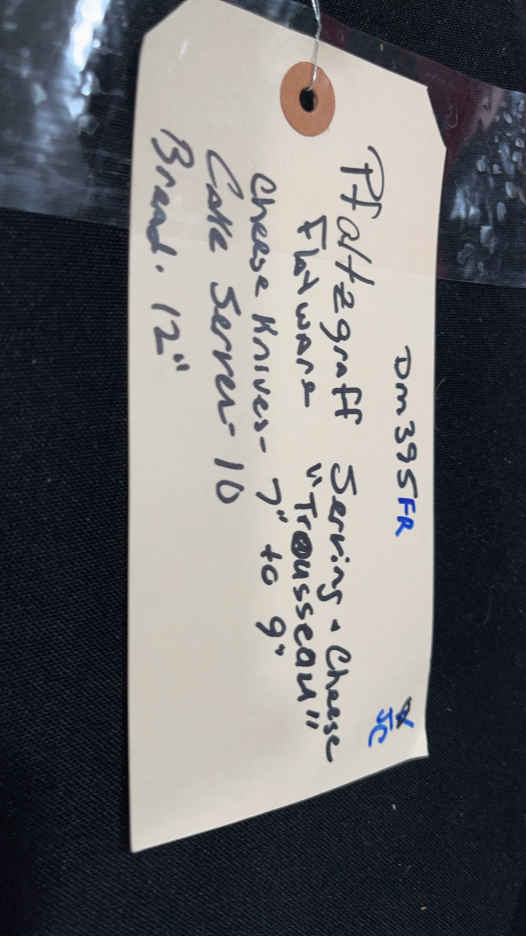 Dm395FR
JC
Pfaltzgraff Serving + Cheese
Flatware "Trousseau"
Cheese Knives - 7" to 9"
Cake Server - 10
Bread. 12"